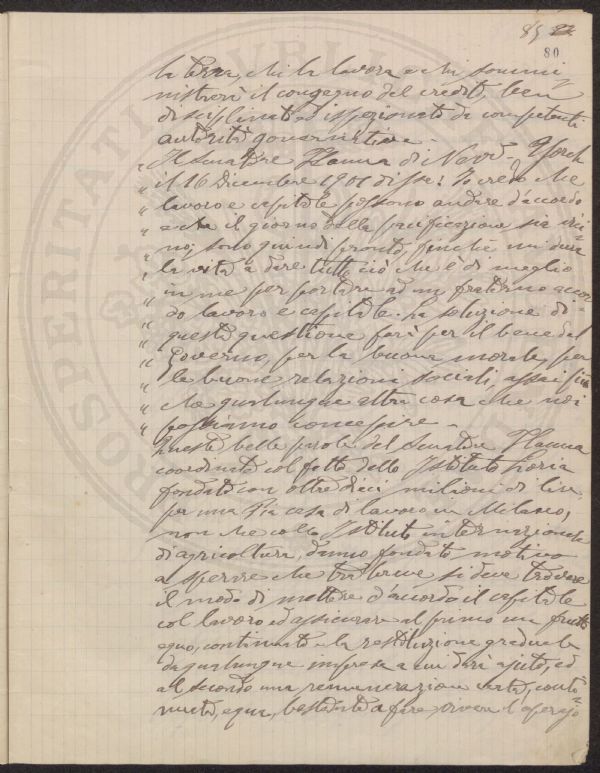 85
80
la terra, chi la lavora e chi sommi
nistrerà il congegno del credito, ben
disciplinato, ed ispezionato da competenti
autorità governative.
Il Senatore Hanna di New-York
" il 16 Dicembre 1901 disse: Io credo che
" lavoro e capitale possono andare d'accordo
" e che il giorno della pacificazione sia vici-
" no; sono quindi pronto, finchè mi dura
" la vita a dare tutto ciò che è di meglio
" in me per portare ad un fraterno accor
" do lavoro e capitale. La soluzione di
" questa questione farà per il bene del
" Governo, per la buona morale, per
" le buone relazioni sociali, assai più
" che qualunque altra cosa che noi
" possiamo concepire.
Queste belle parole del Senatore Hanna
coordinate col fatto dello Istituto Loria
fondato con oltre dieci milioni di lire
per una Pia casa di lavoro in Milano,
non che collo Istituto internazionale
di agricoltura, danno fondato motivo
a sperare che tra breve si deve trovare
il modo di mettere d'accordo il capitale
col lavoro ed assicurare al primo un frutto
equo, continuato e la restituzione graduale
da qualunque impresa a cui darà ajuto, ed
al secondo una remunerazione certa, conti-
nuata, equa, bastante a fare vivere l'operajo
PROSPERITÀ PUBLICA